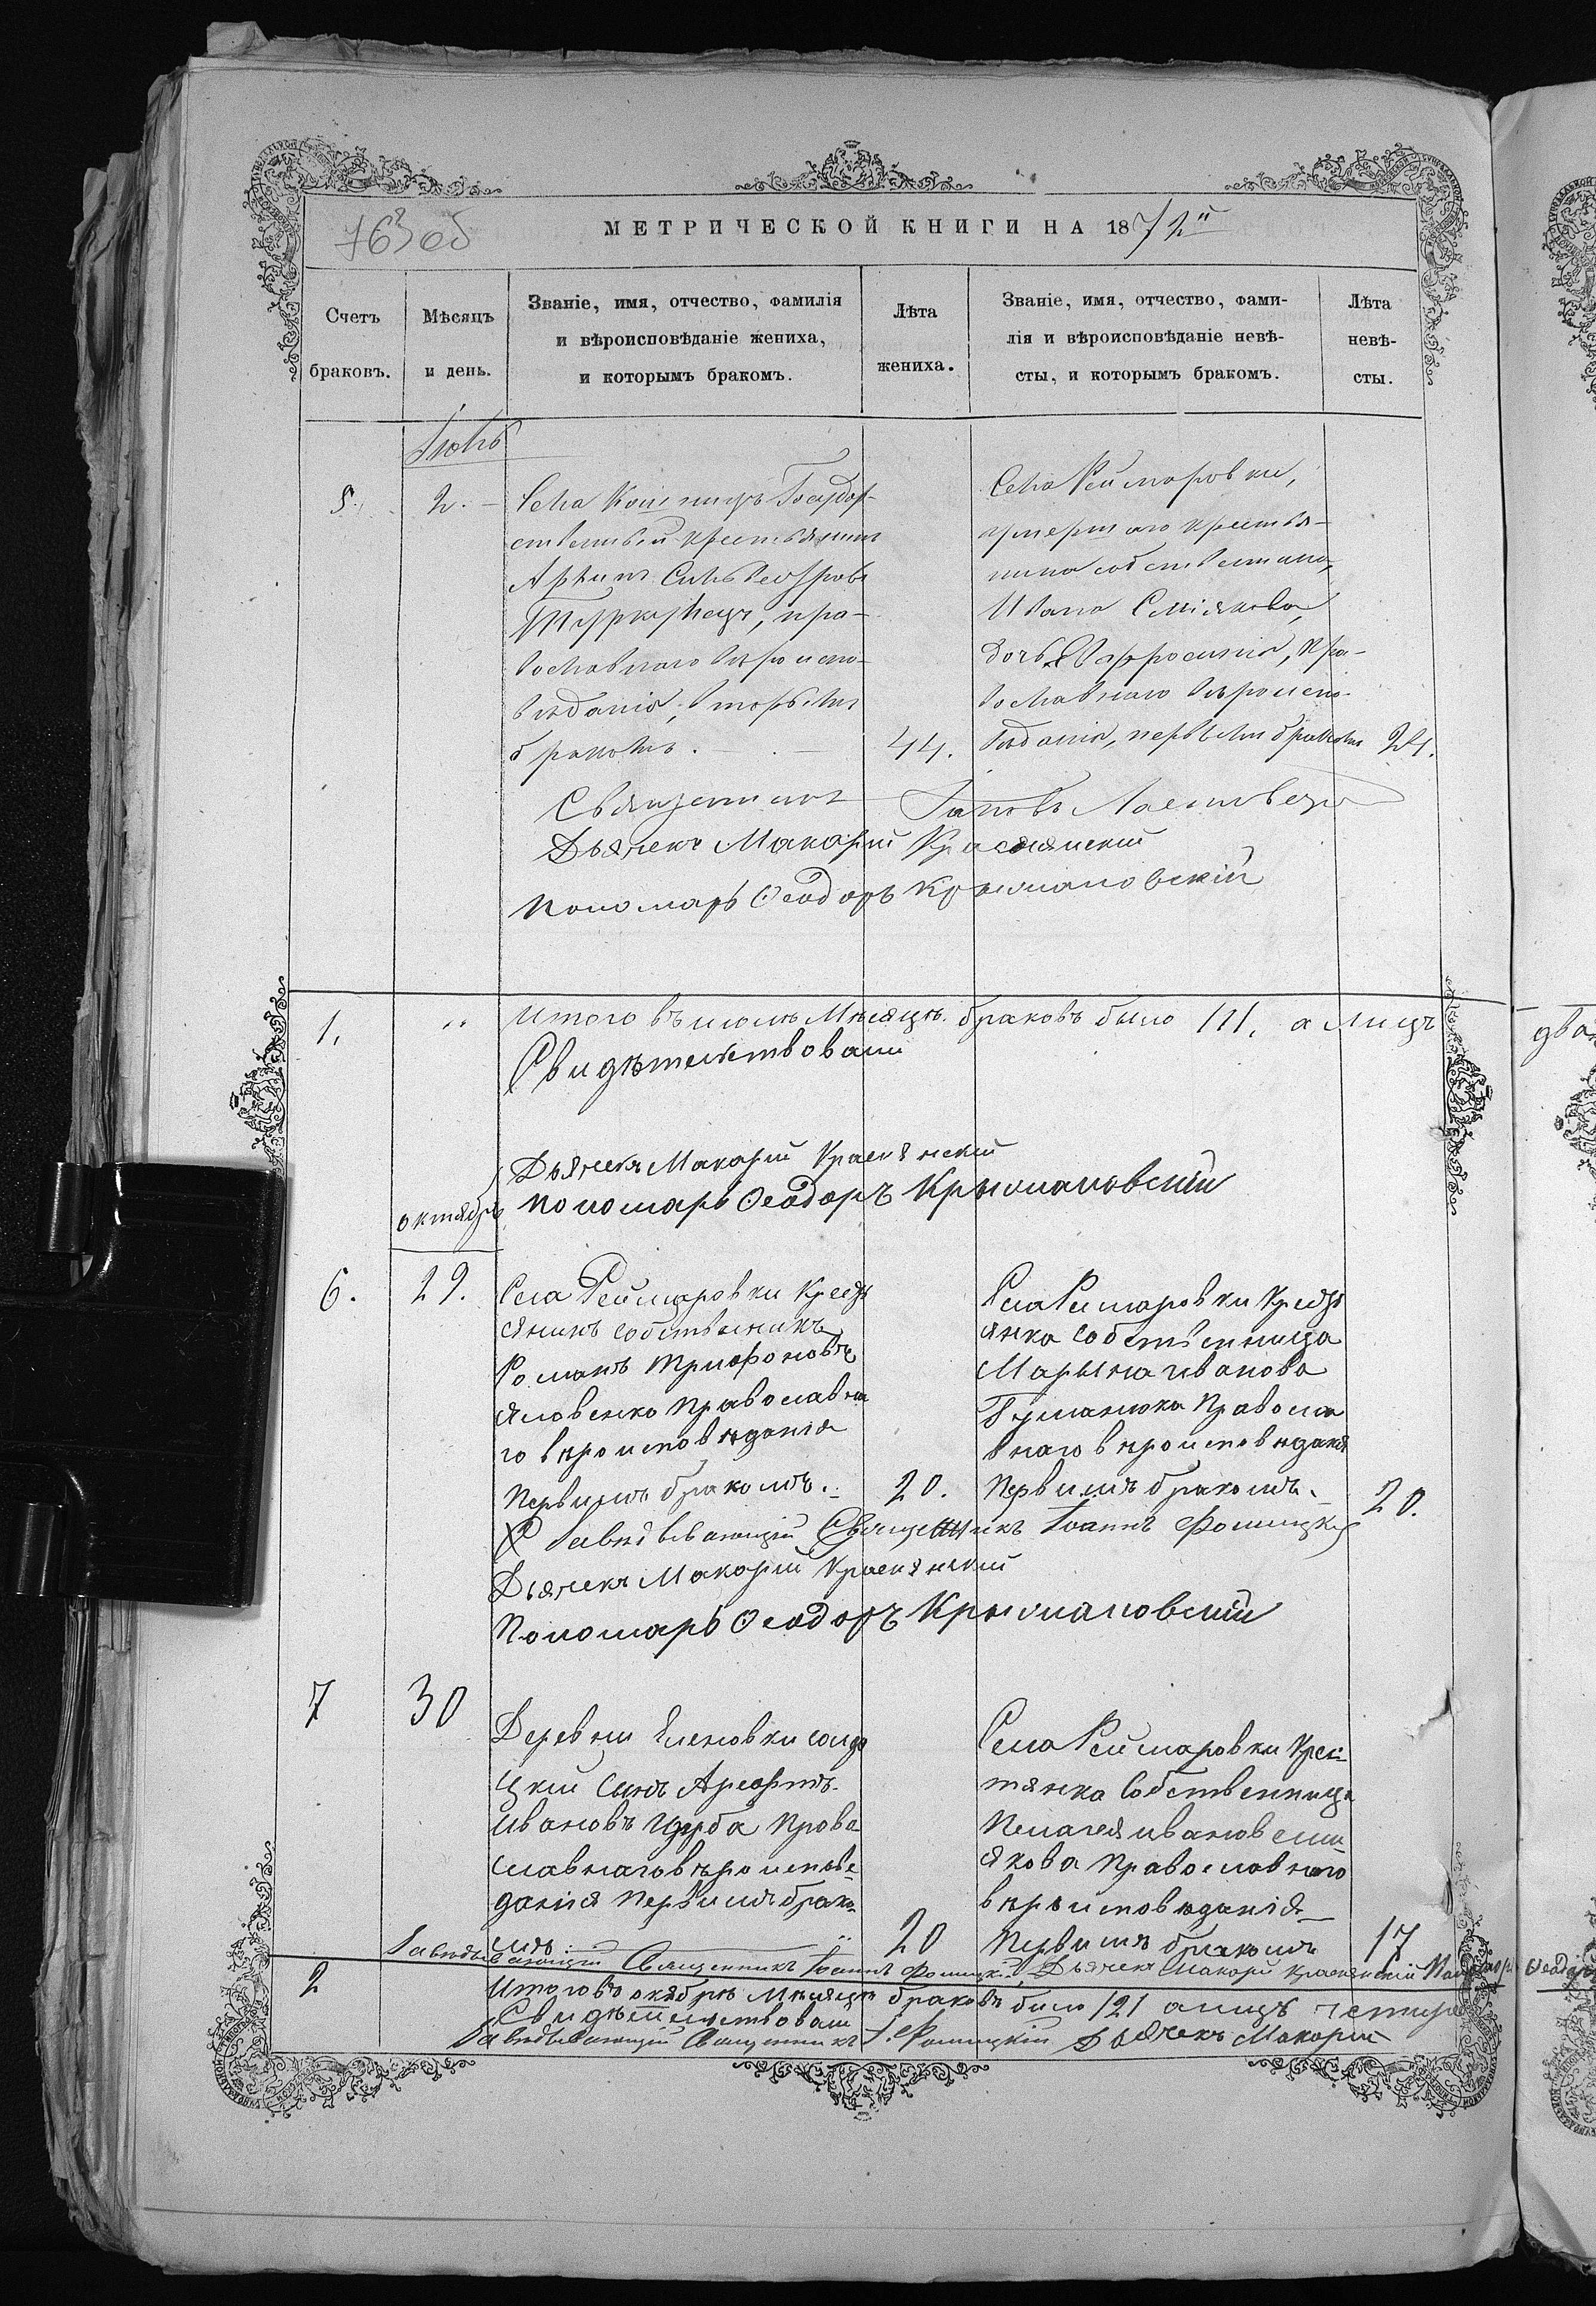 763 об
МЕТРИЧЕСКОЙ КНИГИ НА 1872й
Счетъ браковъ.
Мѣсяцъ и день.
Званіе, имя, отчество, фамилія
и вѣроисповѣданіе жениха,
и которымъ бракомъ.
Лѣта жениха.
Званіе, имя, отчество, фами-
лія и вѣроисповѣданіе невѣ-
сты, и которымъ бракомъ.
Лѣта невѣ-
сты.
5. 2. Села Государ-
ственный крестьянинъ
Сильвестровъ
пра-
вославнаго вѣроиспо-
вѣданія, вторымъ
бракомъ. 44.
Села Реймаровки,
умершаго крестья-
нина собственника,
Ивана Сміякова,
дочь Евфросинія, пра-
вославнаго вѣроиспо-
вѣданія, первымъ бракомъ 24.
Священникъ
Дьячекъ Макарій Краснянскій
Пономарь Ѳеодоръ Крыжановскій
1. " Итого въ июлѣ мѣсяцѣ браковъ было /1/. а лицъ
два
Свидѣтельствовали
Дьячекъ Макарій Краснянскій
Пономарь Ѳеодоръ Крыжановскій
октябрь
6. 29. Села Реймаровки Крестъ
янинъ собственникъ
Романъ Трифоновъ
Яловенко Православна
го вѣроисповѣданія
Первимъ бракомъ. 20.
Села Реймаровки Крестъ
янка собственница
Марына иванова
Православ
наго вѣроисповѣданія
Первимъ бракомъ. 20.
Завѣдывающій Священникъ Іоаннъ
Дьячекъ Макарій Краснянскій
Пономарь Ѳеодоръ Крыжановскій
7 30 Деревни Еленовки солда
цкій сынъ
ивановъ Право
славнаго вѣроисповѣ
данія Первимъ брако
мъ 20
Села Реймаровки Крес-
тянка Собственница
Пелагея иванов сми
якова Православнаго
вѣроисповѣданія
Первимъ бракомъ 17
Завѣдывающій Священникъ Іоаннъ Дьячекъ Макарій Краснянскій
2 Итого въ окябрѣ мѣсяцѣ браковъ било /2/ а лицъ четире
Свидѣтельствовали
Завѣдывающій Священникъ І. Дьячекъ Макарій